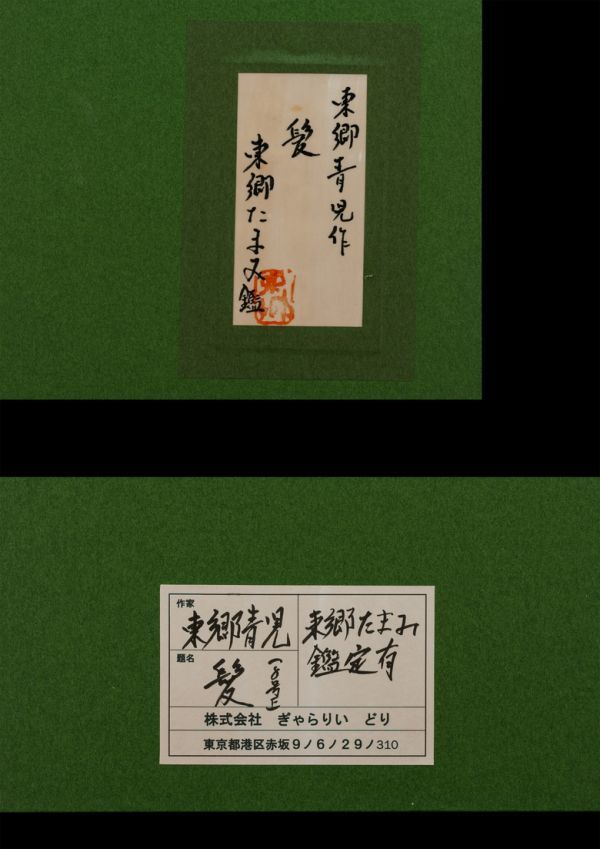 東郷青児作
髪
東郷たまみ鑑
作家
東郷青児
題名
髪
東郷たまみ
鑑定有
株式会社　ぎゃらりい　どり
東京都港区赤坂９ノ６ノ２９ノ310